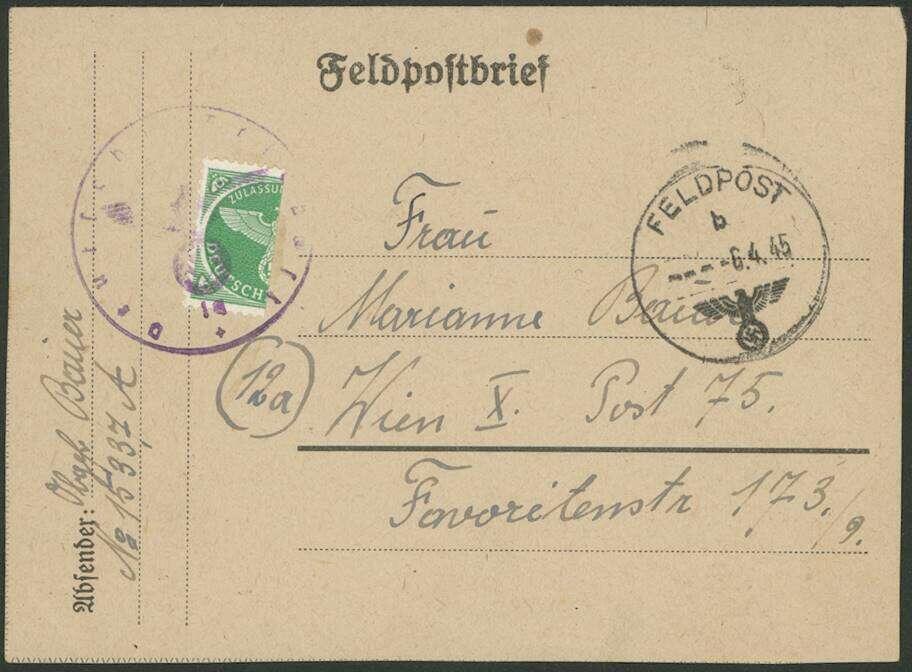 Feldpostbrief
ZULASSU
DEUTSCH
FELDPOST
b
-6.4.45
Frau
Marianne Bauer
12a
Wien X. Post 75.
Favoritenstr 173./9.
Absender: Obgef. Bauer
No 15337 A